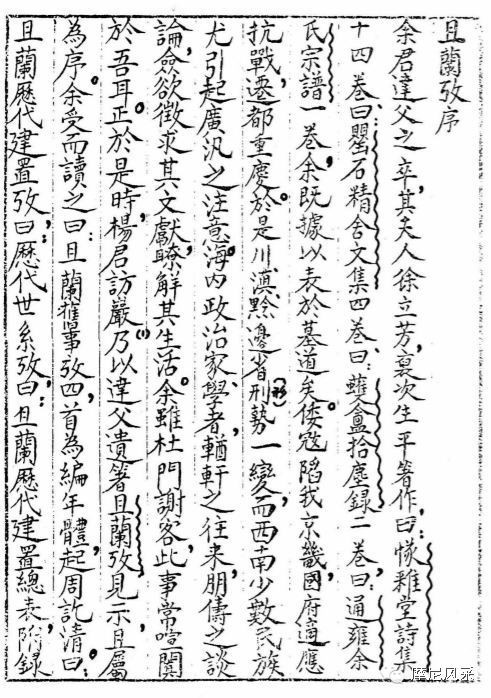 且蘭攷序
余君達父之卒,其夫人徐立芳,裒次生平箸作,曰:㦤雅堂詩集
十四卷曰:罌石精舍文集四卷曰:雙盦拾塵録二卷曰:通雍余
氏宗譜一卷,余既據以表於墓道矣。倭寇陷我京畿,國府適應
抗戰,遷都重慶。於是川滇黔邊省刑(形)勢一變,而西南少數民族
尤引起廣汎之注意。海内政治家,學者,輶軒之往来,朋儔之談
論,僉欲徵求其文獻,瞭解其生活。余雖杜門謝客,此事常喧闐
於吾耳。正於是時,楊君訪嚴(1)乃以達父遺箸且蘭攷見示,且屬
為序。余受而讀之曰:且蘭雜事攷四,首為編年體,起周訖清。曰:
且蘭歷代建置攷,曰:歷代世系攷曰:且蘭歷代建置總表,附錄
摩尼风采